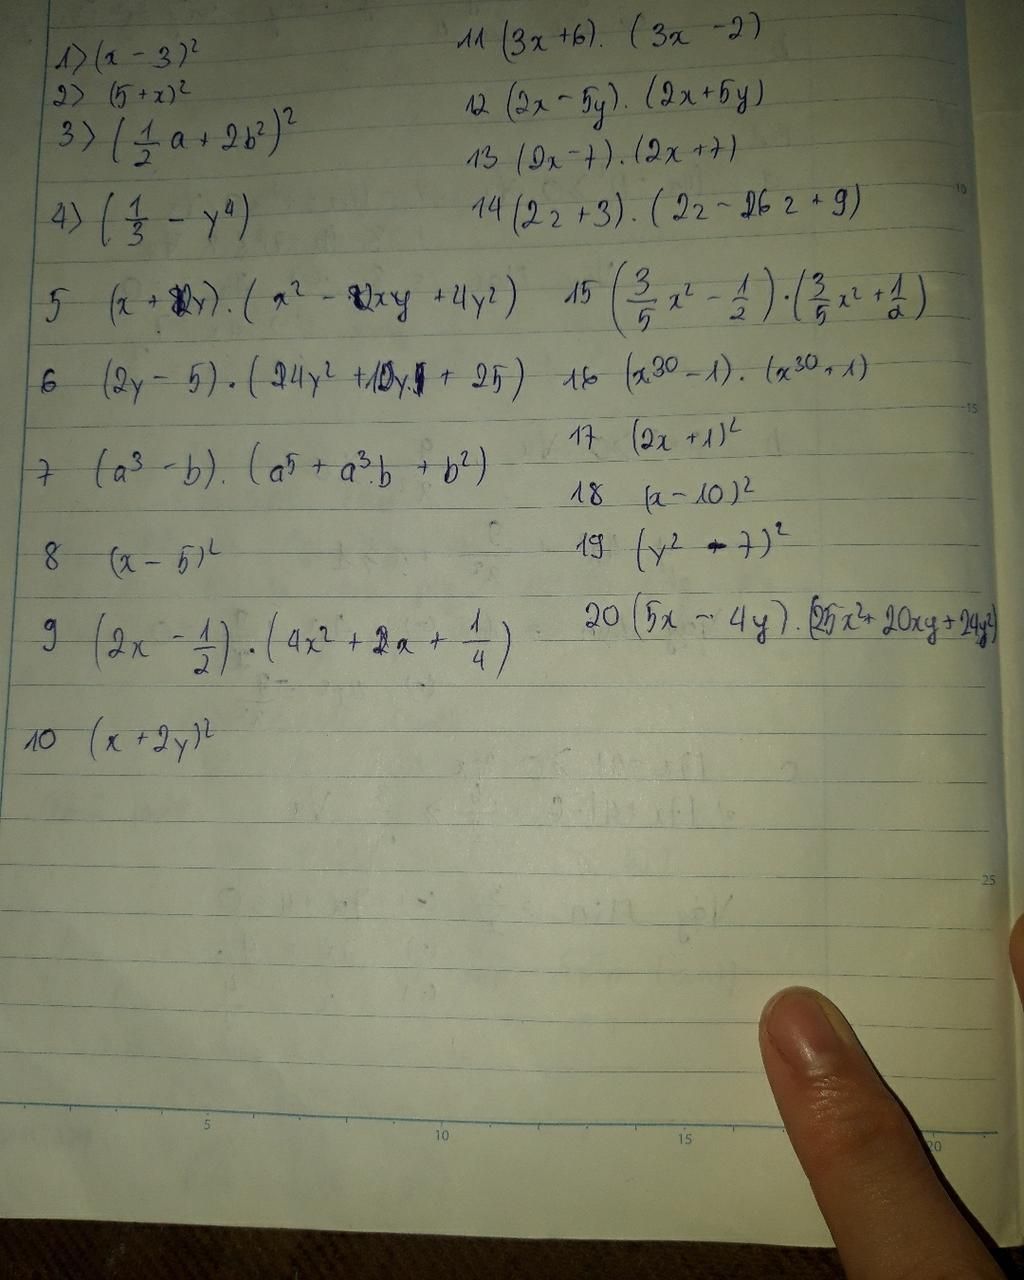 1> (x - 3)²
2> (5 + x)²
3> (1/2 a + 2b²)²
4> (1/3 - y⁴)
5 (x + 2y).(x² - 2xy + 4y²)
6 (2y - 5).(4y² + 10y + 25)
7 (a³ - b).(a⁵ + a³.b + b²)
8 (x - 5)²
9 (2x - 1/2).(4x² + x + 1/4)
10 (x + 2y)²
11 (3x + 6).(3x - 2)
12 (2x - 5y).(2x + 5y)
13 (2x - 7).(2x + 7)
14 (2z + 3).(2z - 26z + 9)
15 (3/5 x² - 1/2).(3/5 x² + 1/2)
16 (x³⁰ - 1).(x³⁰ + 1)
17 (2x + 1)²
18 (x - 10)²
19 (y² - 7)²
20 (5x - 4y).(25x² + 20xy + 24y²)
5
10
15
20
10
15
25